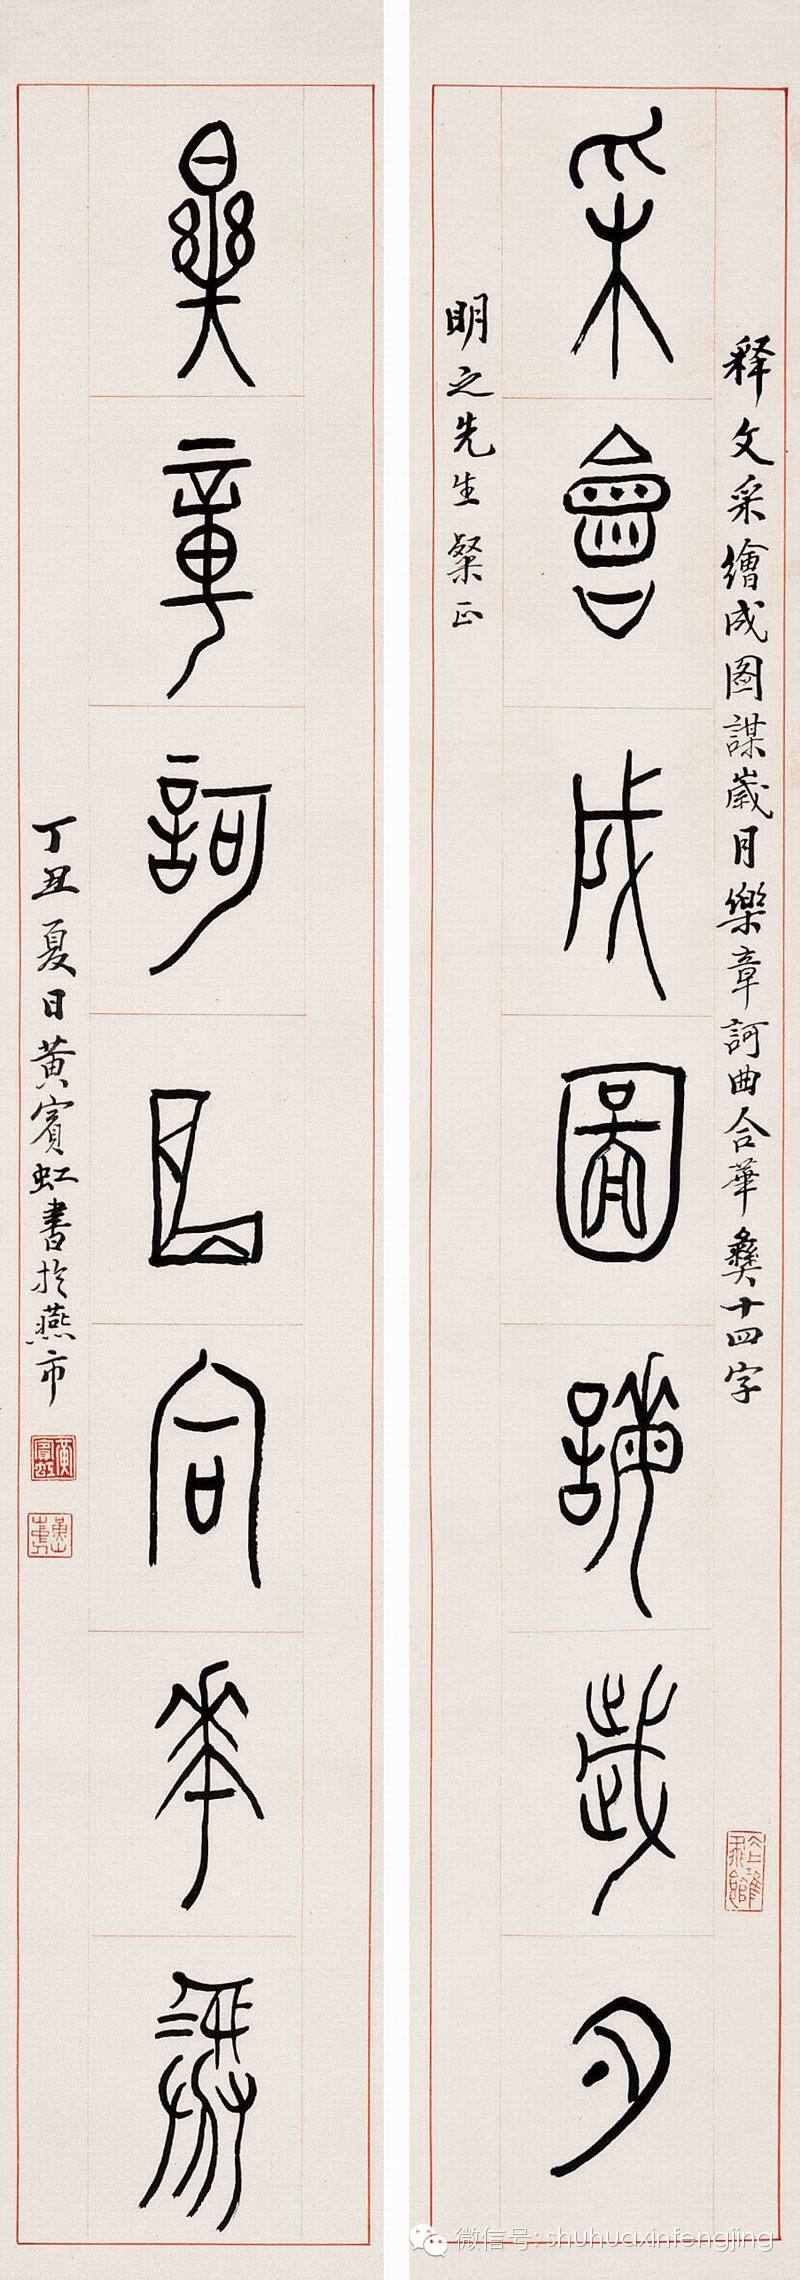 释文采繪成图謀嵗月樂章訶曲合華彝十四字
采會成圖謀歲月
明之先生粲正
樂章訶曲合華彝
丁丑夏日黄賓虹書於燕市
黄賓虹
微信号: shuhuaxinfengjing